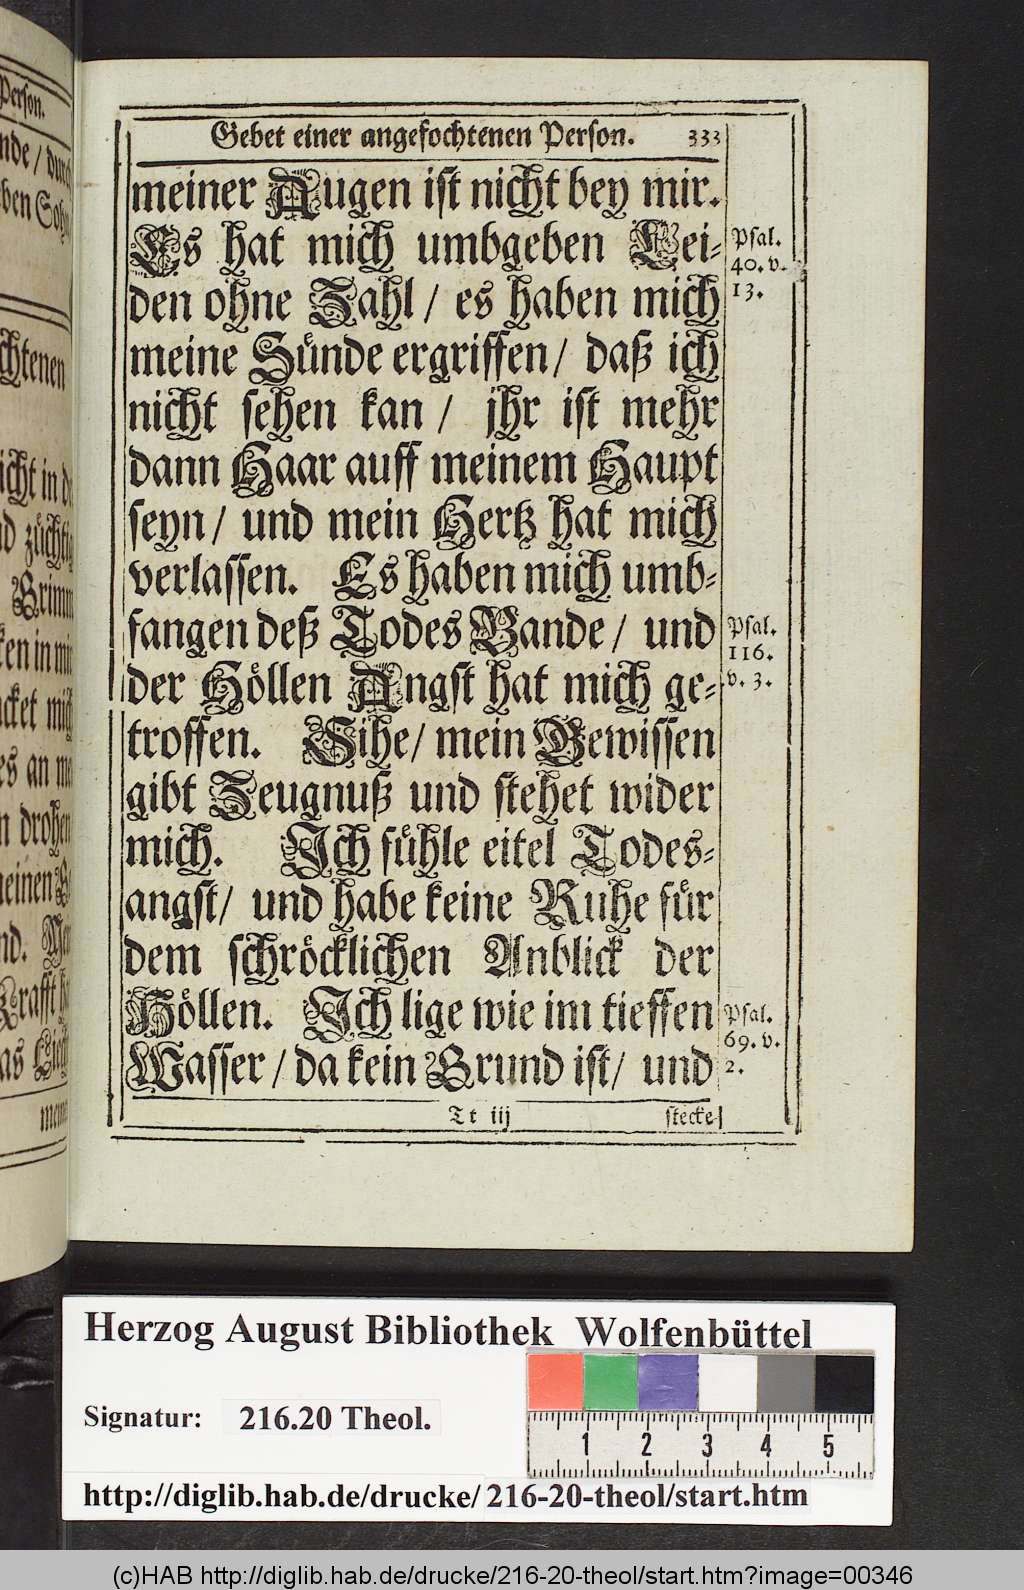 Person.
nde / durch
ben Sohn
chtenen
icht in d
nd züchtig
Grimm
ken in mir
cket mich
es an me
n drohen
meinen
nd.
Krafft
as Liecht
meine
Gebet einer angefochtenen Person. 333
meiner Augen ist nicht bey mir.
Es hat mich umbgeben Lei-
den ohne Zahl / es haben mich
meine Sünde ergriffen / daß ich
nicht sehen kan / jhr ist mehr
dann Haar auff meinem Haupt
seyn / und mein Hertz hat mich
verlassen. Es haben mich umb-
fangen deß Todes Bande / und
der Höllen Angst hat mich ge-
troffen. Sihe / mein Gewissen
gibt Zeugnuß und stehet wider
mich. Ich fühle eitel Todes-
angst / und habe keine Ruhe für
dem schröcklichen Anblick der
Höllen. Ich lige wie im tieffen
Wasser / da kein Grund ist / und
Tt iij stecke
Psal.
40. v.
13.
Psal.
116.
v. 3.
Psal.
69. v.
2.
Herzog August Bibliothek Wolfenbüttel
Signatur: 216.20 Theol.
1 2 3 4 5
http://diglib.hab.de/drucke/216-20-theol/start.htm
(c)HAB http://diglib.hab.de/drucke/216-20-theol/start.htm?image=00346